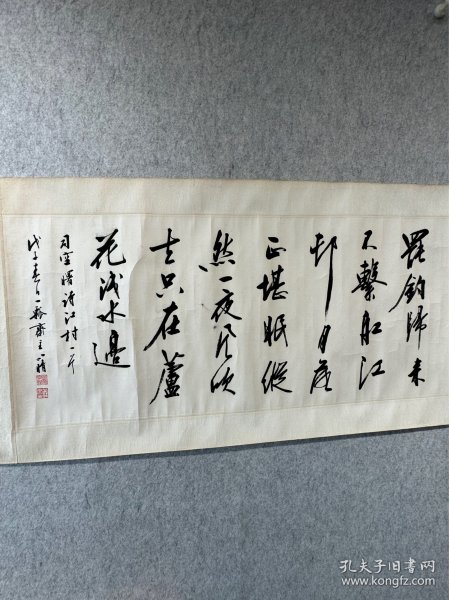 罷釣歸来
不繫舡江
邨月落
正堪眠縱
然一夜風吹
去只在蘆
花淺水邊
司空曙詩江村一
戊子春月一齋主
孔夫子旧书网
www.kongfz.com